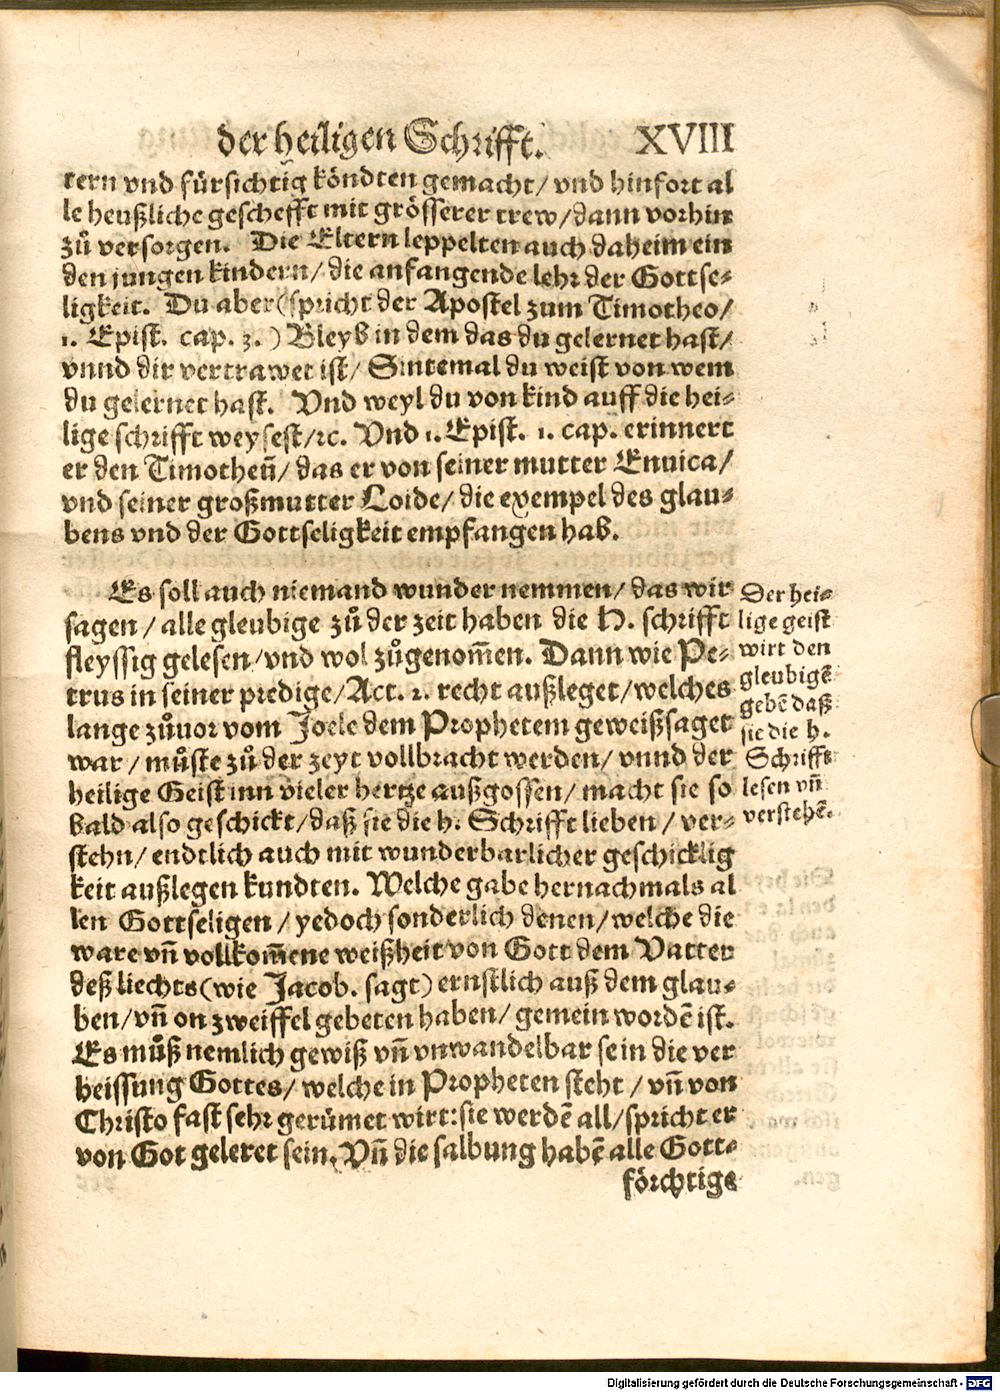 der heiligen Schrifft. XVIII
tern vnd fürsichtig köndten gemacht/ vnd hinfort al
le heußliche geschefft mit grösserer trew/dann vorhin
zů versorgen. Die Eltern leppelten auch daheim ein
den jungen kindern/ die anfangende lehr der Gottse-
ligkeit. Du aber (spricht der Apostel zum Timotheo/
1. Epist. cap. 3.) Bleyb in dem das du gelernet hast/
vnnd dir vertrawet ist/ Sintemal du weist von wem
du gelernet hast. Vnd weyl du von kind auff die hei-
lige schrifft weysest/ꝛc. Vnd 1. Epist. 1. cap. erinnert
er den Timotheū/ das er von seiner mutter Ennica/
vnd seiner großmutter Loide/ die exempel des glau-
bens vnd der Gottseligkeit empfangen hab.
Es soll auch niemand wunder nemmen/ das wir
sagen / alle gleubige zů der zeit haben die H. schrifft
fleyssig gelesen/vnd wol zůgenom̄en. Dann wie Pe-
trus in seiner predige/Act. 2. recht außleget/welches
lange zůuor vom Joele dem Prophetem geweißsaget
war / můste zů der zeyt vollbracht werden/ vnnd der
heilige Geist inn vieler hertze außgossen/ macht sie so
bald also geschickt/daß sie die h. Schrifft lieben / ver-
stehn/ endtlich auch mit wunderbarlicher geschicklig
keit außlegen kundten. Welche gabe hernachmals al
len Gottseligen / yedoch sonderlich denen/ welche die
ware vñ vollkom̄ene weißheit von Gott dem Vatter
deß liechts (wie Jacob. sagt) ernstlich auß dem glau-
ben/vñ on zweiffel gebeten haben/ gemein wordē ist.
Es můß nemlich gewiß vñ vnwandelbar sein die ver
heissung Gottes/ welche in Propheten steht / vñ von
Christo fast sehr gerümet wirt: sie werdē all/spricht er
von Got geleret sein. Vñ die salbung habē alle Gott-
förchtige
Der hei-
lige geist
wirt den
gleubigē
gebē daß
sie die h.
Schrifft
lesen vñ
verstehē.
Digitalisierung gefördert durch die Deutsche Forschungsgemeinschaft - DFG